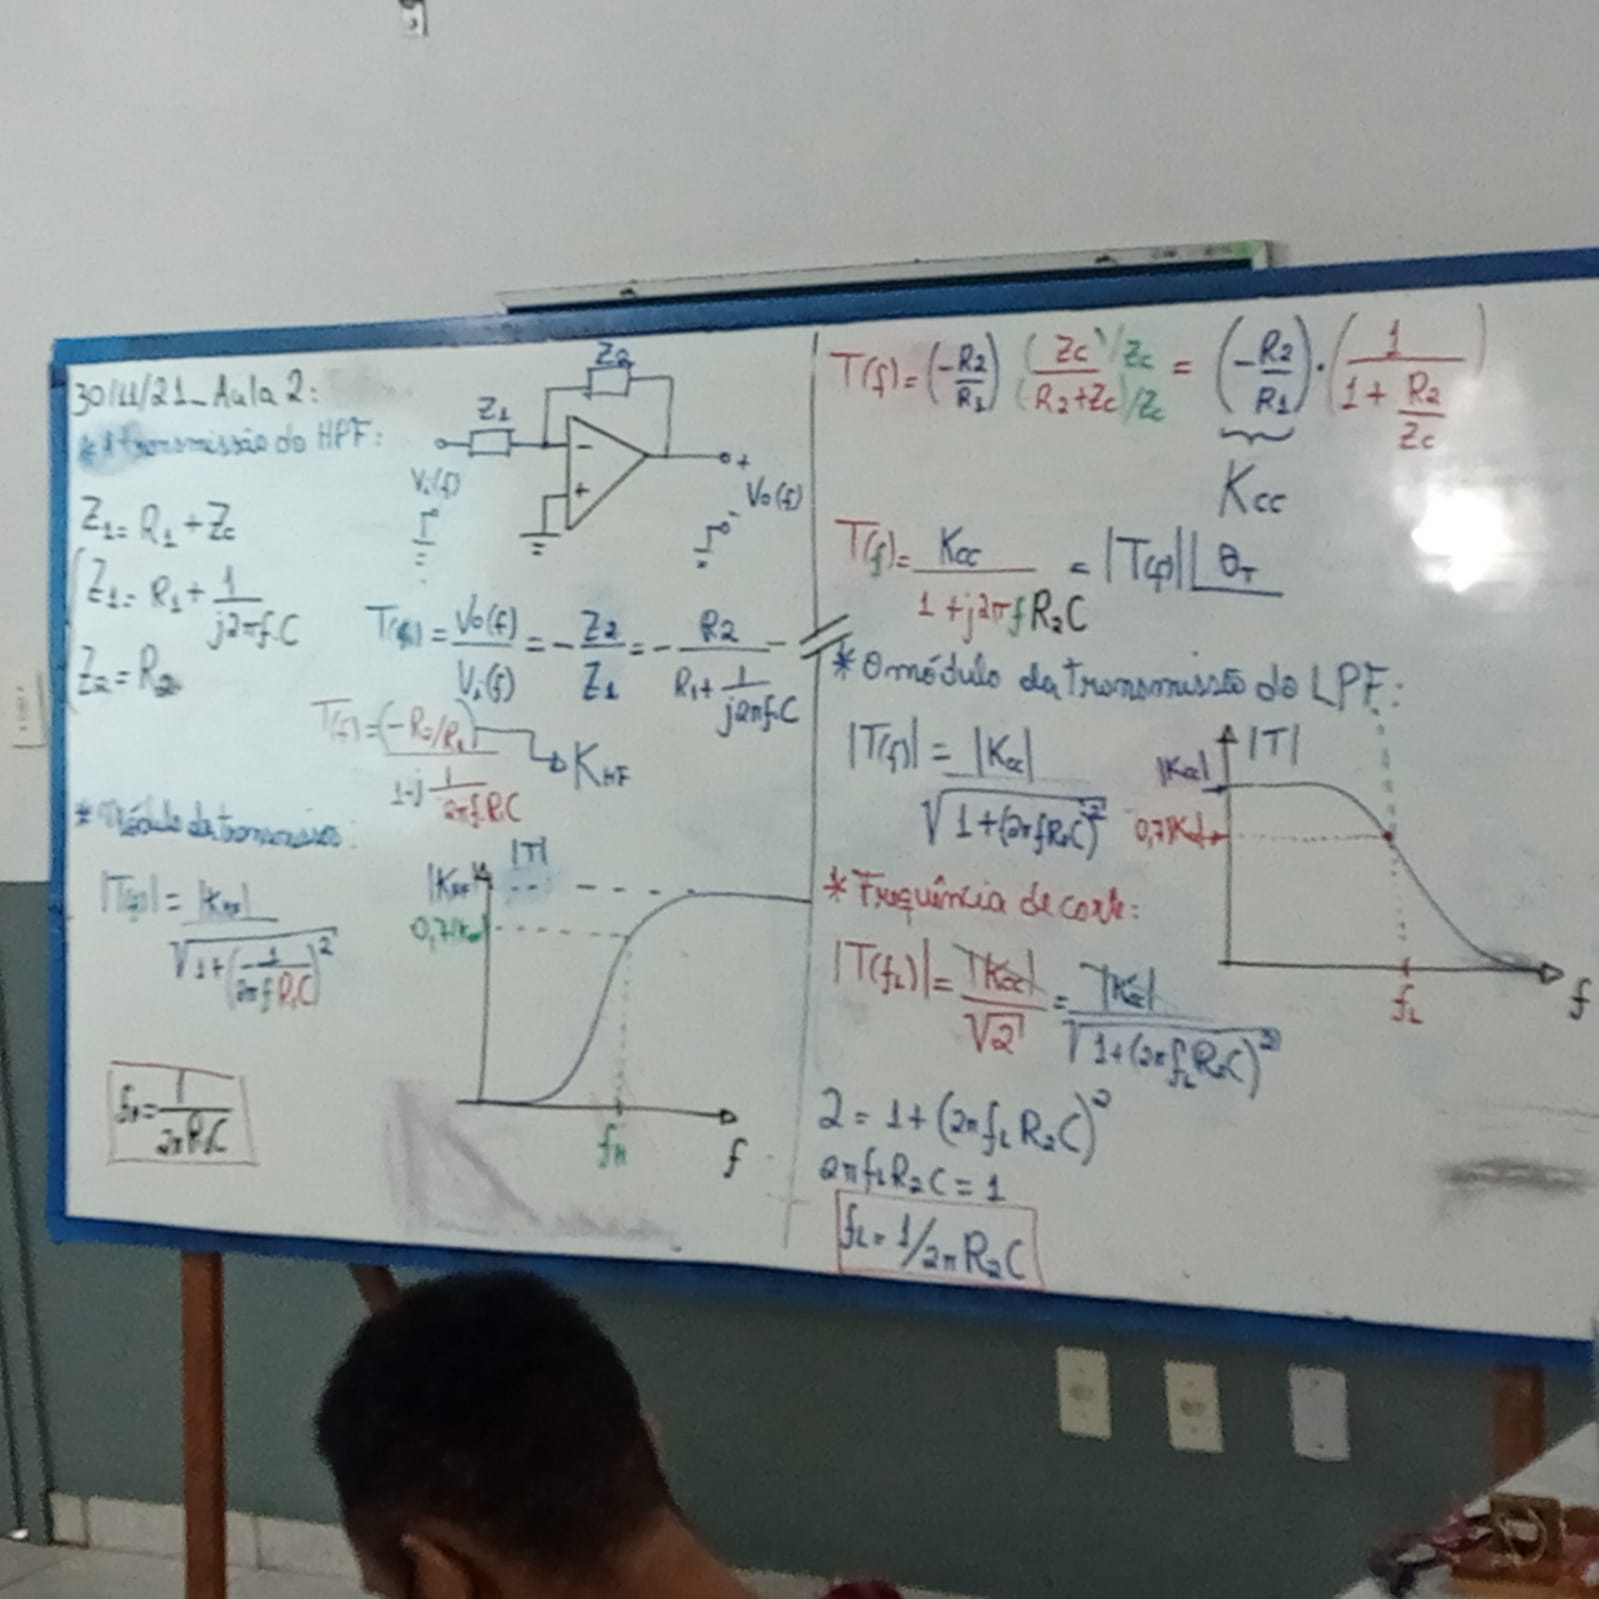 30/11/21_Aula 2:
* A transmissão do HPF:
Z1 = R1 + Zc
Z1 = R1 + 1/(j2πf.C)
Z2 = R2
Z2
Z1
-
+
Vi(f)
+
Vo(f)
-
T(f) = Vo(f)/Vi(f) = -Z2/Z1 = -R2/(R1 + 1/(j2πf.C))
T(f) = (-R2/R1)/(1-j 1/(2πf.R1C)) → KHF
* Módulo da transmissão:
|T(f)| = |KHF|/√(1+(-1/(2πf R1C))²)
|T|
|KHF|
0,7|KHF|
fH
f
fH = 1/(2πR1C)
T(f) = (-R2/R1) (Zc)/Zc/(R2+Zc)/Zc = (-R2/R1).(1/(1 + R2/Zc))
Kcc
T(f) = Kcc/(1 + j2πfR2C) = |T(f)|∟θT
* O módulo da transmissão do LPF:
|T(f)| = |Kcc|/√(1+(2πfR2C)²)
|T|
|Kcc|
0,7|Kcc|
fL
f
* Frequência de corte:
|T(fL)| = |Kcc|/√2 = |Kcc|/√(1+(2πfLR2C)²)
2 = 1 + (2πfL R2C)²
2πfLR2C = 1
fL = 1/2πR2C